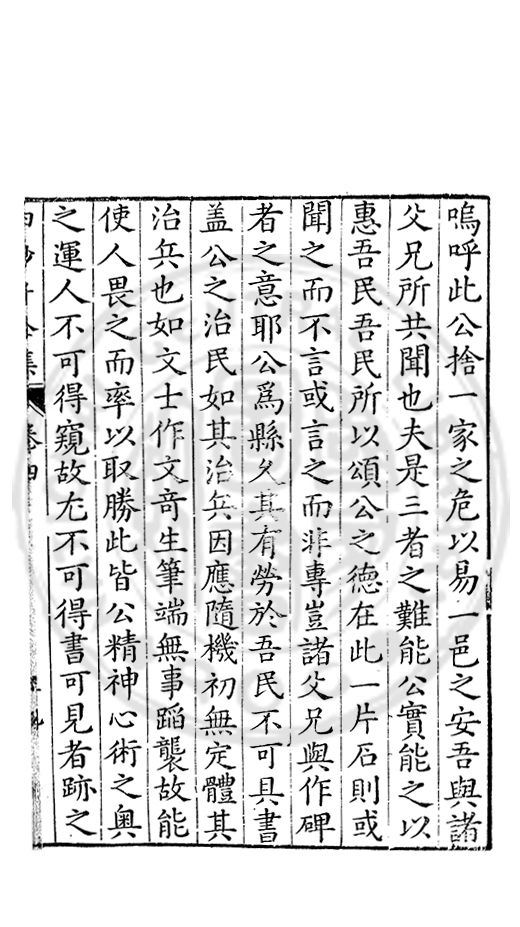 嗚呼此公捨一家之危以易一邑之安吾與諸
父兄所共聞也夫是三者之難能公實能之以
惠吾民吾民所以頌公之德在此一片石則或
聞之而不言或言之而非專豈諸父兄與作碑
者之意耶公爲縣久其有勞於吾民不可具書
盖公之治民如其治兵因應隨機初無定體其
治兵也如文士作文竒生筆端無事蹈襲故能
使人畏之而率以取勝此皆公精神心術之奥
之運人不可得窺故尤不可得書可見者跡之
全集 卷四